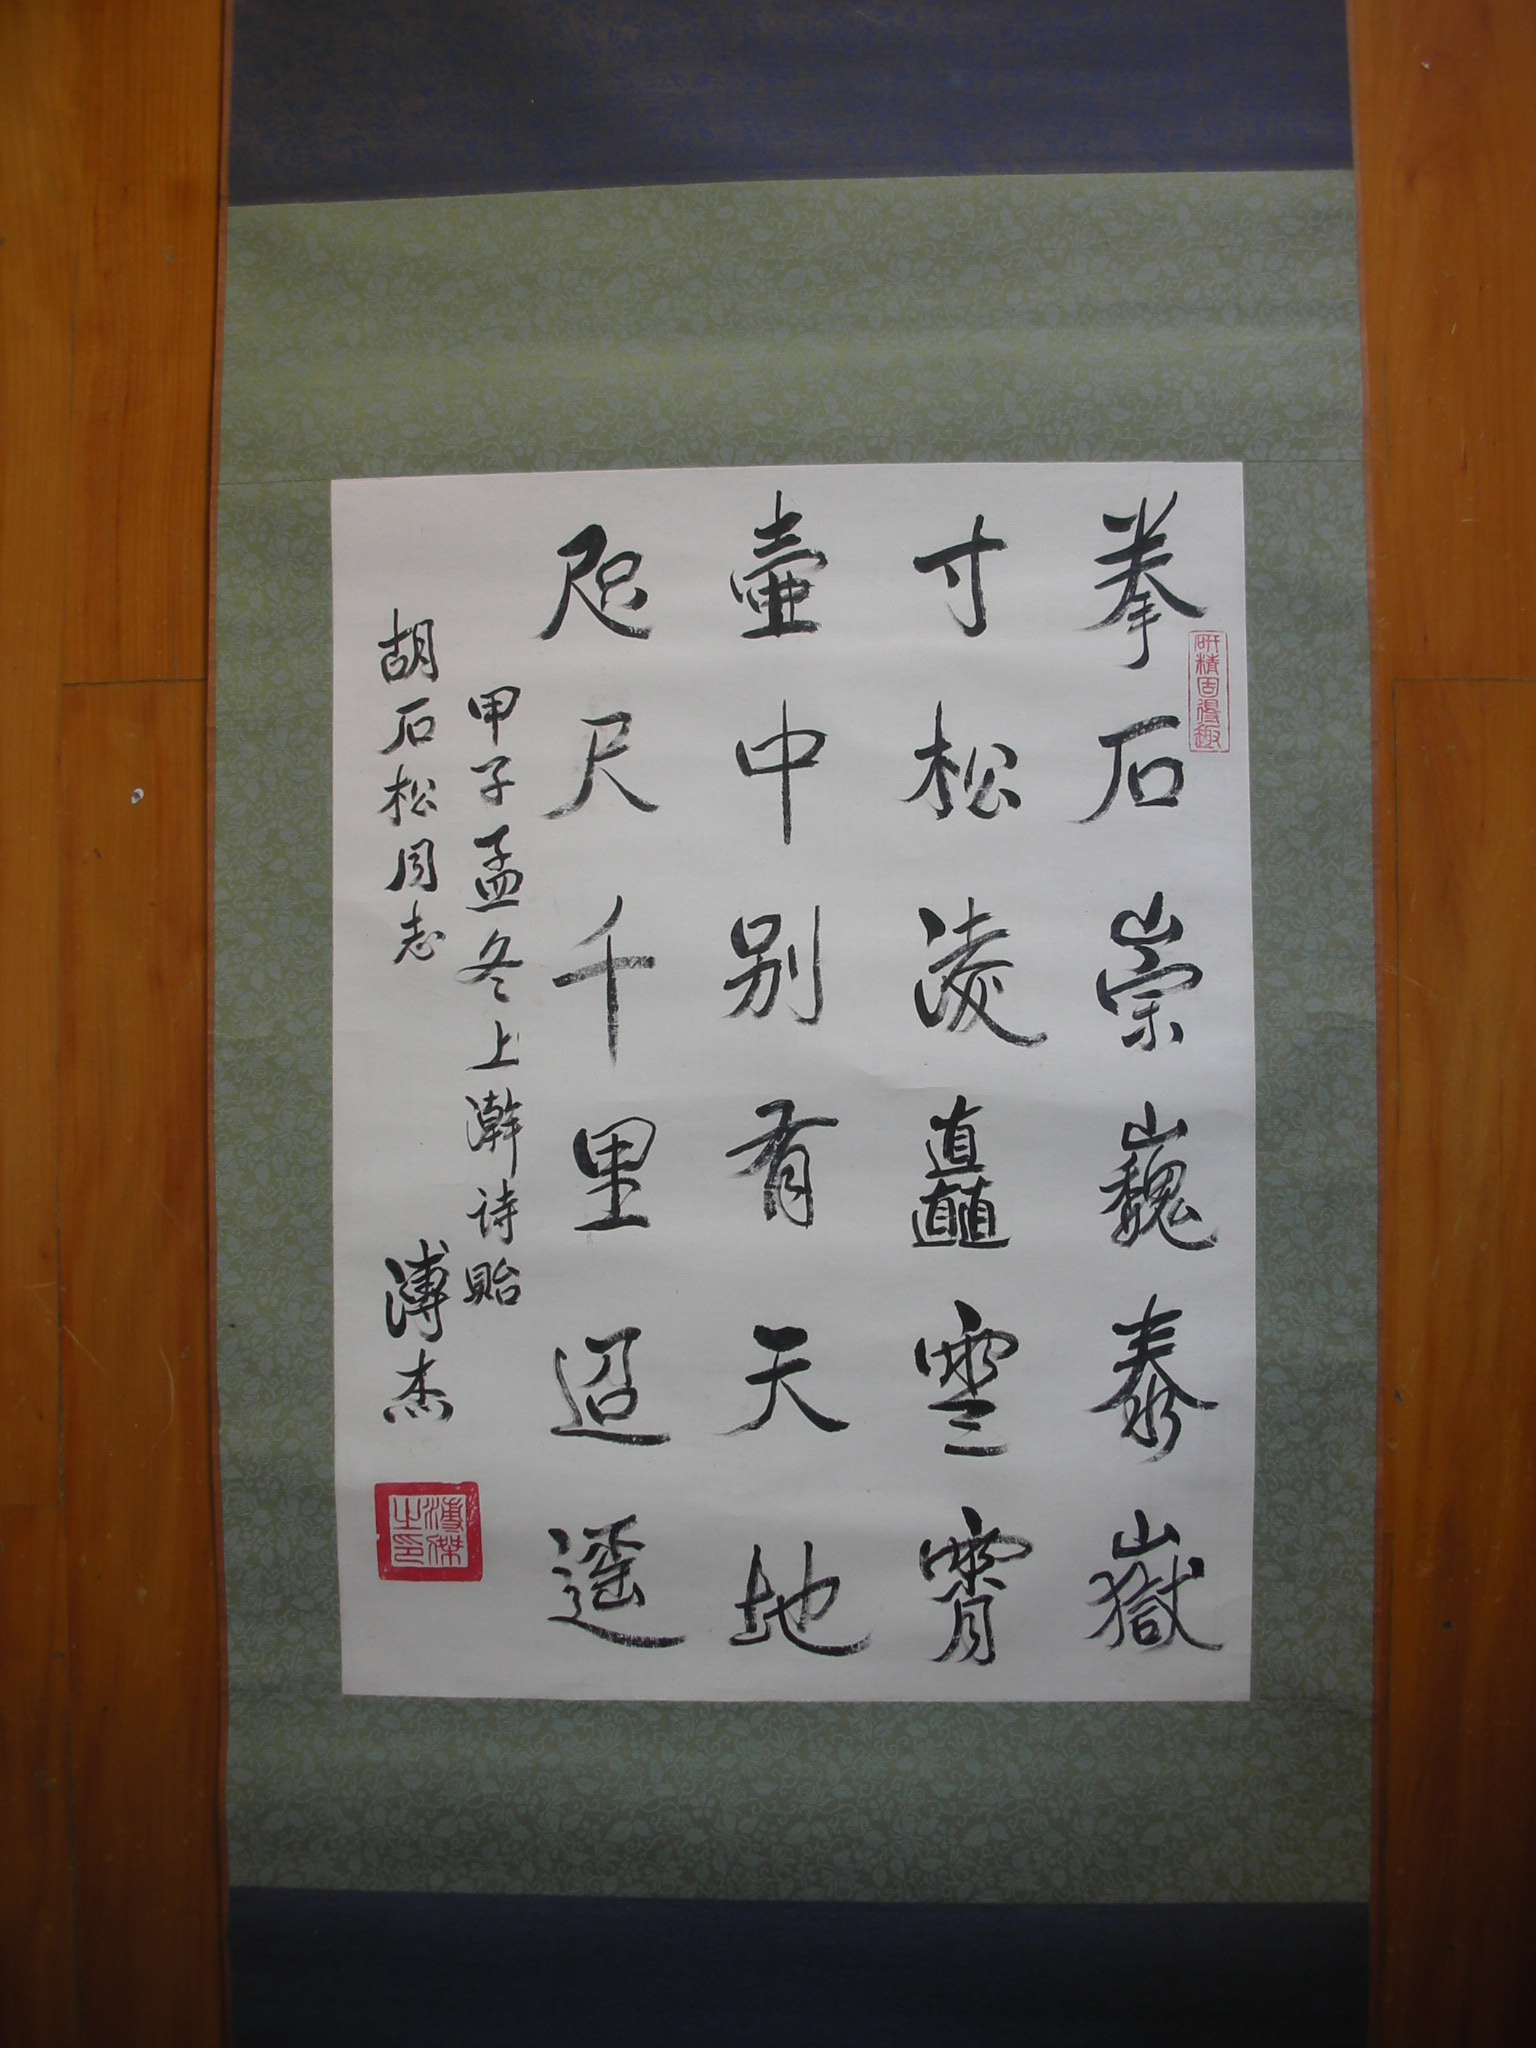 拳石崇巍泰嶽
寸松凌矗雲霄
壺中别有天地
咫尺千里迢遥
甲子孟冬上澣诗貽
胡石松同志
溥杰
研精固得趣
溥傑之印